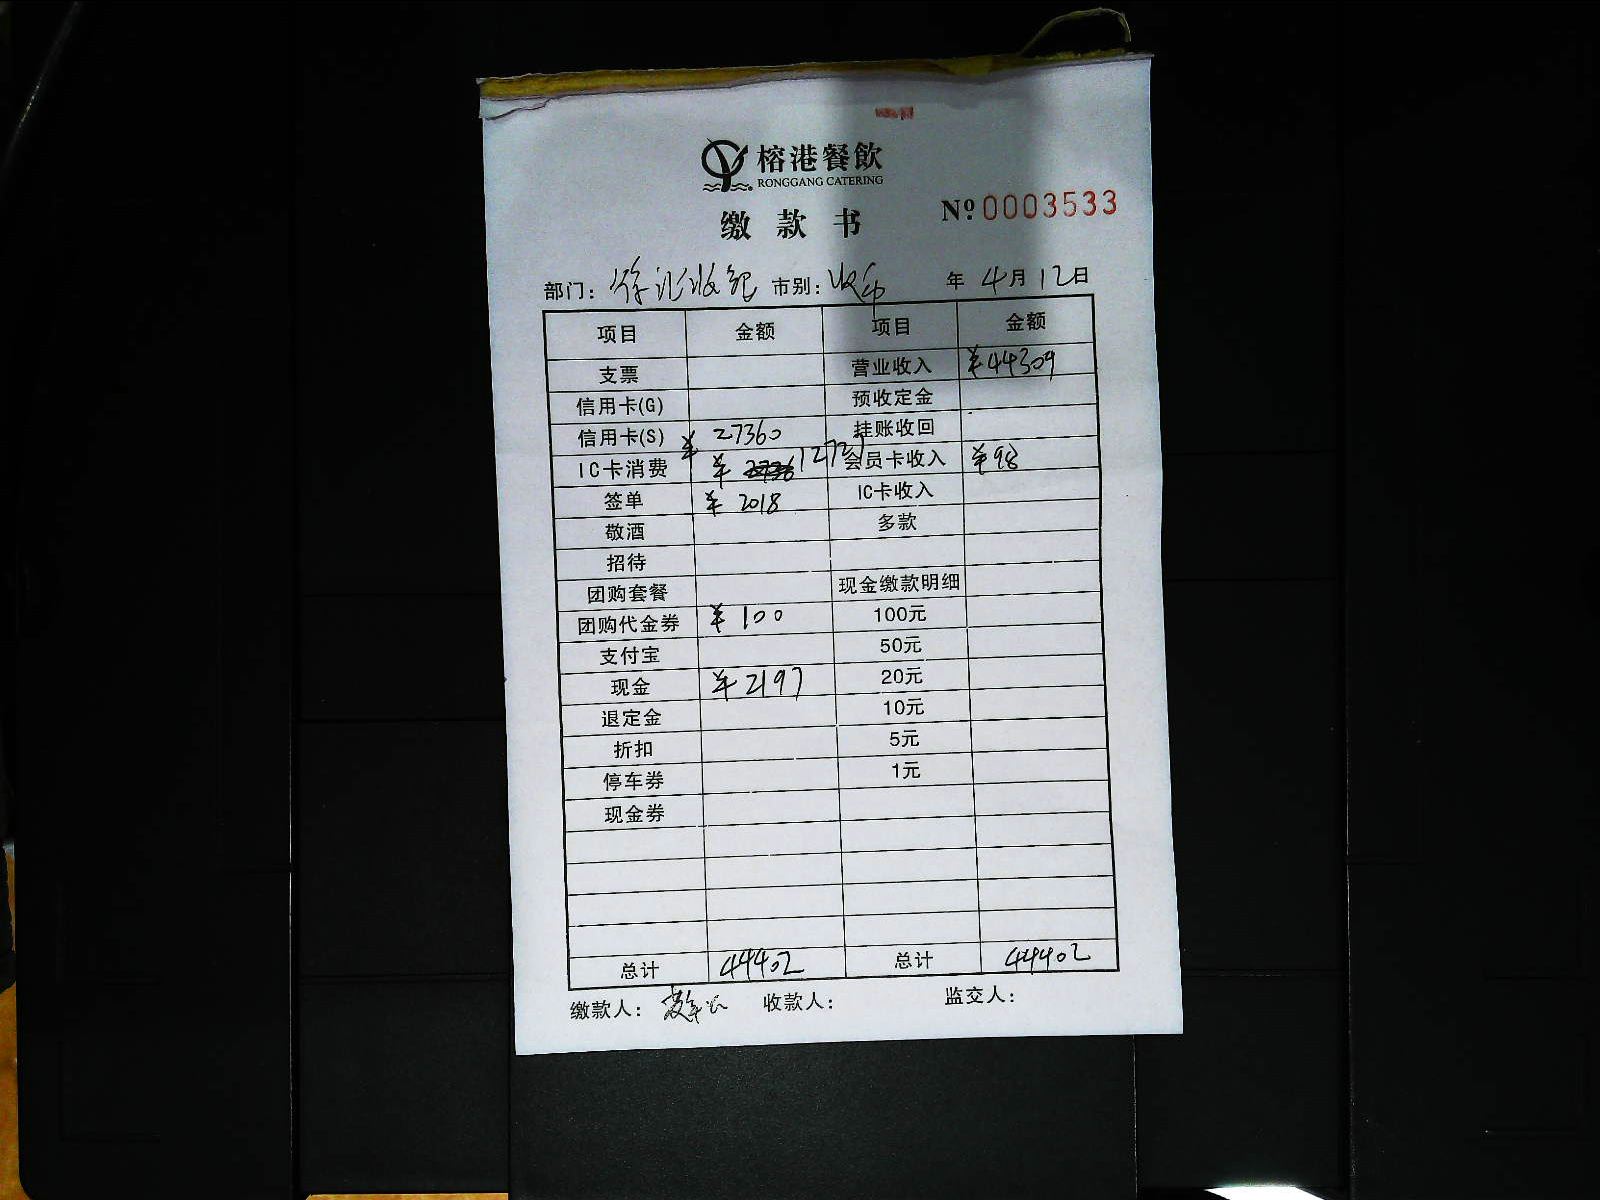 榕港餐飲
RONGGANG CATERING
缴款书
Nº 0003533
部门: 徐汇收银 市别: 收市 年 4月12日
项目 金额 项目 金额
支票 营业收入 ¥44309
信用卡(G) 预收定金
信用卡(S) ¥ 27360 挂账收回
IC卡消费 ¥ 12727 会员卡收入 ¥98
签单 ¥ 2018 IC卡收入
敬酒 多款
招待
团购套餐 现金缴款明细
团购代金券 ¥ 100 100元
支付宝 50元
现金 ¥2197 20元
退定金 10元
折扣 5元
停车券 1元
现金券
总计 44402 总计 44402
缴款人: 收款人: 监交人: